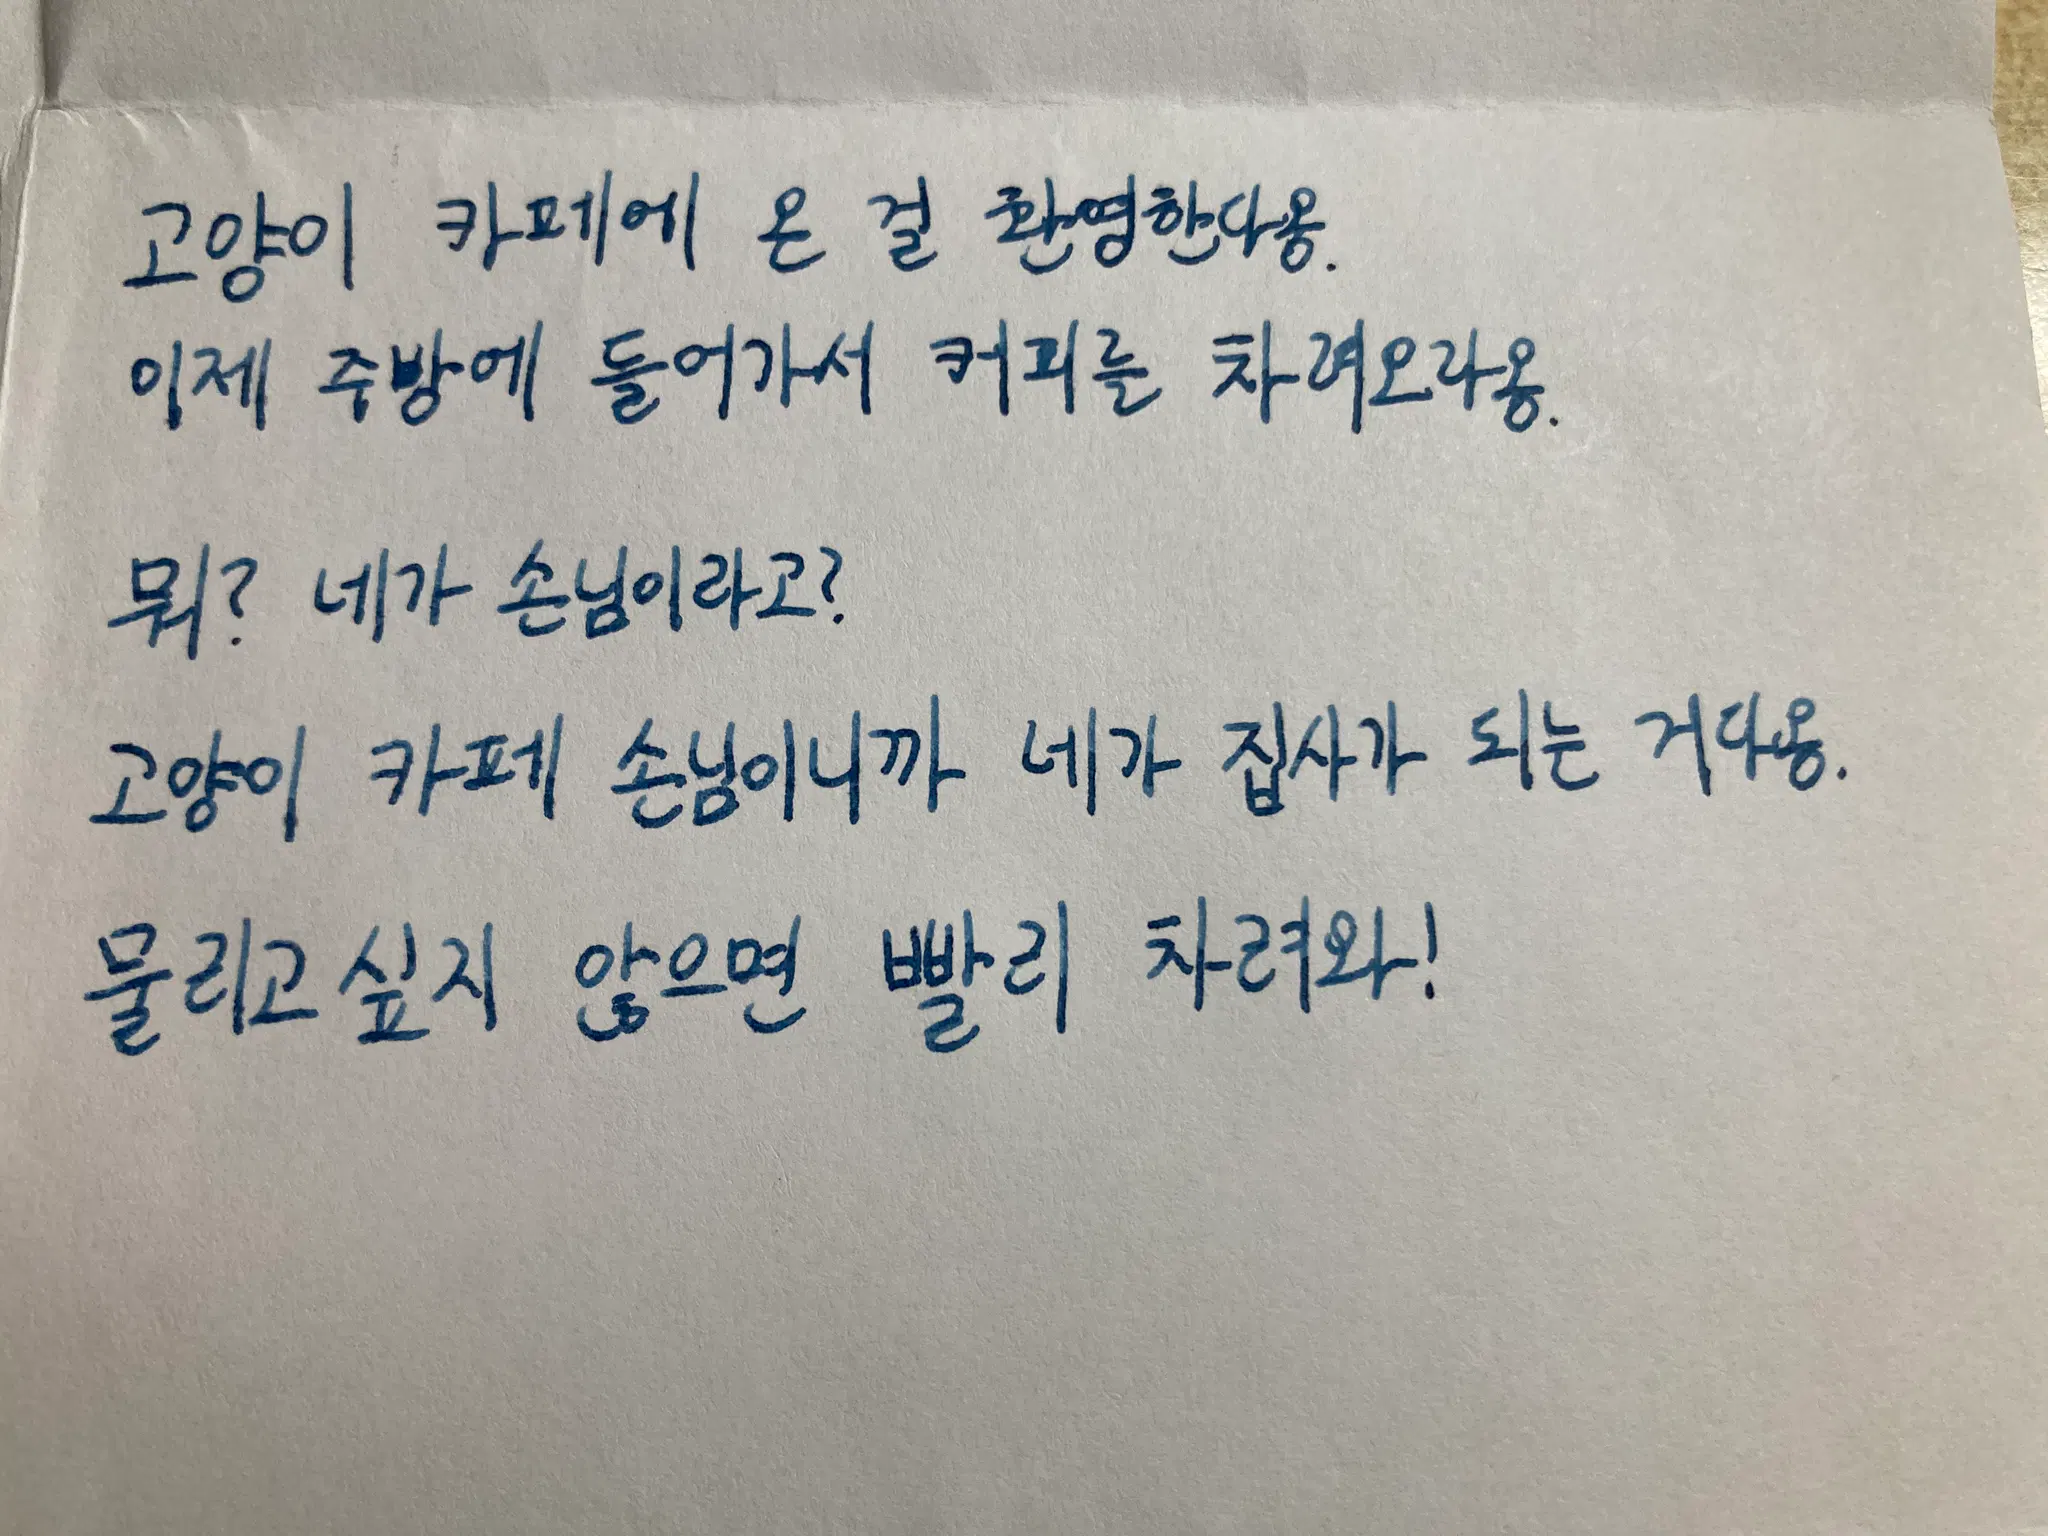 고양이 카페에 온 걸 환영한다옹.
이제 주방에 들어가서 커피를 차려오라옹.
뭐? 네가 손님이라고?
고양이 카페 손님이니까 네가 집사가 되는 거다옹.
물리고 싶지 않으면 빨리 차려와!